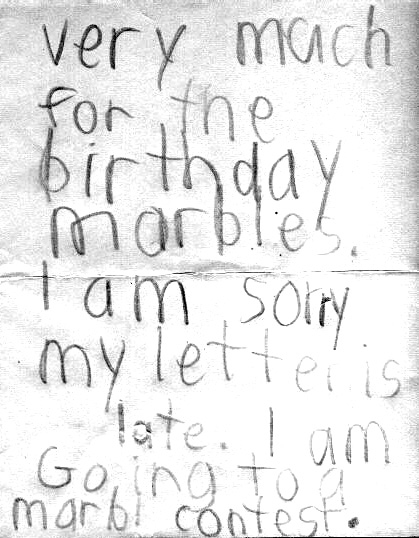 very mach
for the
birthday
marbles.
I am sorry
my letter is
late. I am
Going to a
marbl contest.